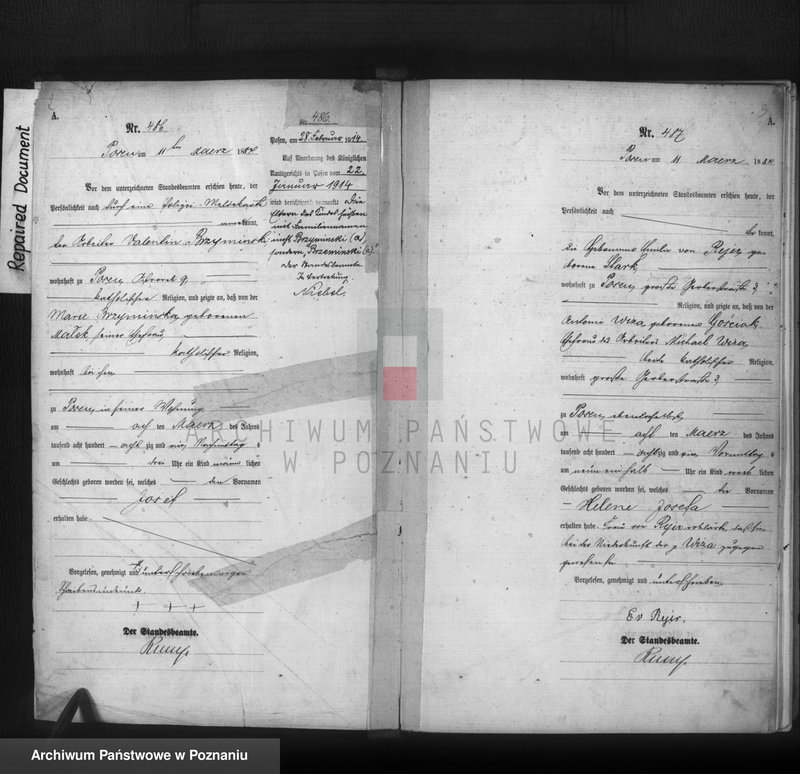 Repaired Document
A.
Nr. 486
Posen am 11 ten Maerz 1884
Vor dem unterzeichneten Standesbeamten erschien heute, der
Persönlichkeit nach durch eine Polizei-Meldekarte
anerkannt,
der Arbeiter Valentin Brzyminski
wohnhaft zu Posen 9
katholischer Religion, und zeigte an, daß von der
Marie Brzyminska geborenen
Malek, seiner Ehefrau,
katholischer Religion,
wohnhaft bei ihm
zu Posen in seiner Wohnung
am acht ten Maerz des Jahres
tausend acht hundert achtzig und vier Nachmittag s
um drei Uhr ein Kind männlichen
Geschlechts geboren worden sei, welches den Vornamen
Josef
erhalten habe
Vorgelesen, genehmigt und unterschrieben wegen
+ + +
Der Standesbeamte.
Rump.
Nr. 486.
Posen, am 28 Februar 1914.
Auf Anordnung des Königlichen
Amtsgerichts in Posen vom 22.
Januar 1914
wird berichtigend vermerkt: Die
Eltern des Kindes heißen
mit Familiennamen
nicht Brzyminski (a)
sondern „Brzeminski (a)."
Der Standesbeamte
In Vertretung
Niebel.
3
A.
Nr. 487
Posen am 11 Maerz 1884
Vor dem unterzeichneten Standesbeamten erschien heute, der
Persönlichkeit nach
be kannt,
die Hebeamme Emilie von Rejer ge
borene Stark
wohnhaft zu Posen, große Gerberstraße 3
Religion, und zeigte an, daß von der
Antonie Wiza geborene Gościak
Ehefrau des Arbeiters Michael Wiza,
beide katholischer Religion,
wohnhaft große Gerberstraße 3
zu Posen ebendaselbst
am acht ten Maerz des Jahres
tausend acht hundert achtzig und vier Vormittag s
um neun einhalb Uhr ein Kind weiblichen
Geschlechts geboren worden sei, welches die Vornamen
Helene Josefa
erhalten habe. Frau von Rejer erklärte, daß sie
bei der Niederkunft der p Wiza zugegen
gewesen sei
Vorgelesen, genehmigt und unterschrieben
E v Rejer.
Der Standesbeamte.
Rump.
ARCHIWUM PAŃSTWOWE
W POZNANIU
Archiwum Państwowe w Poznaniu